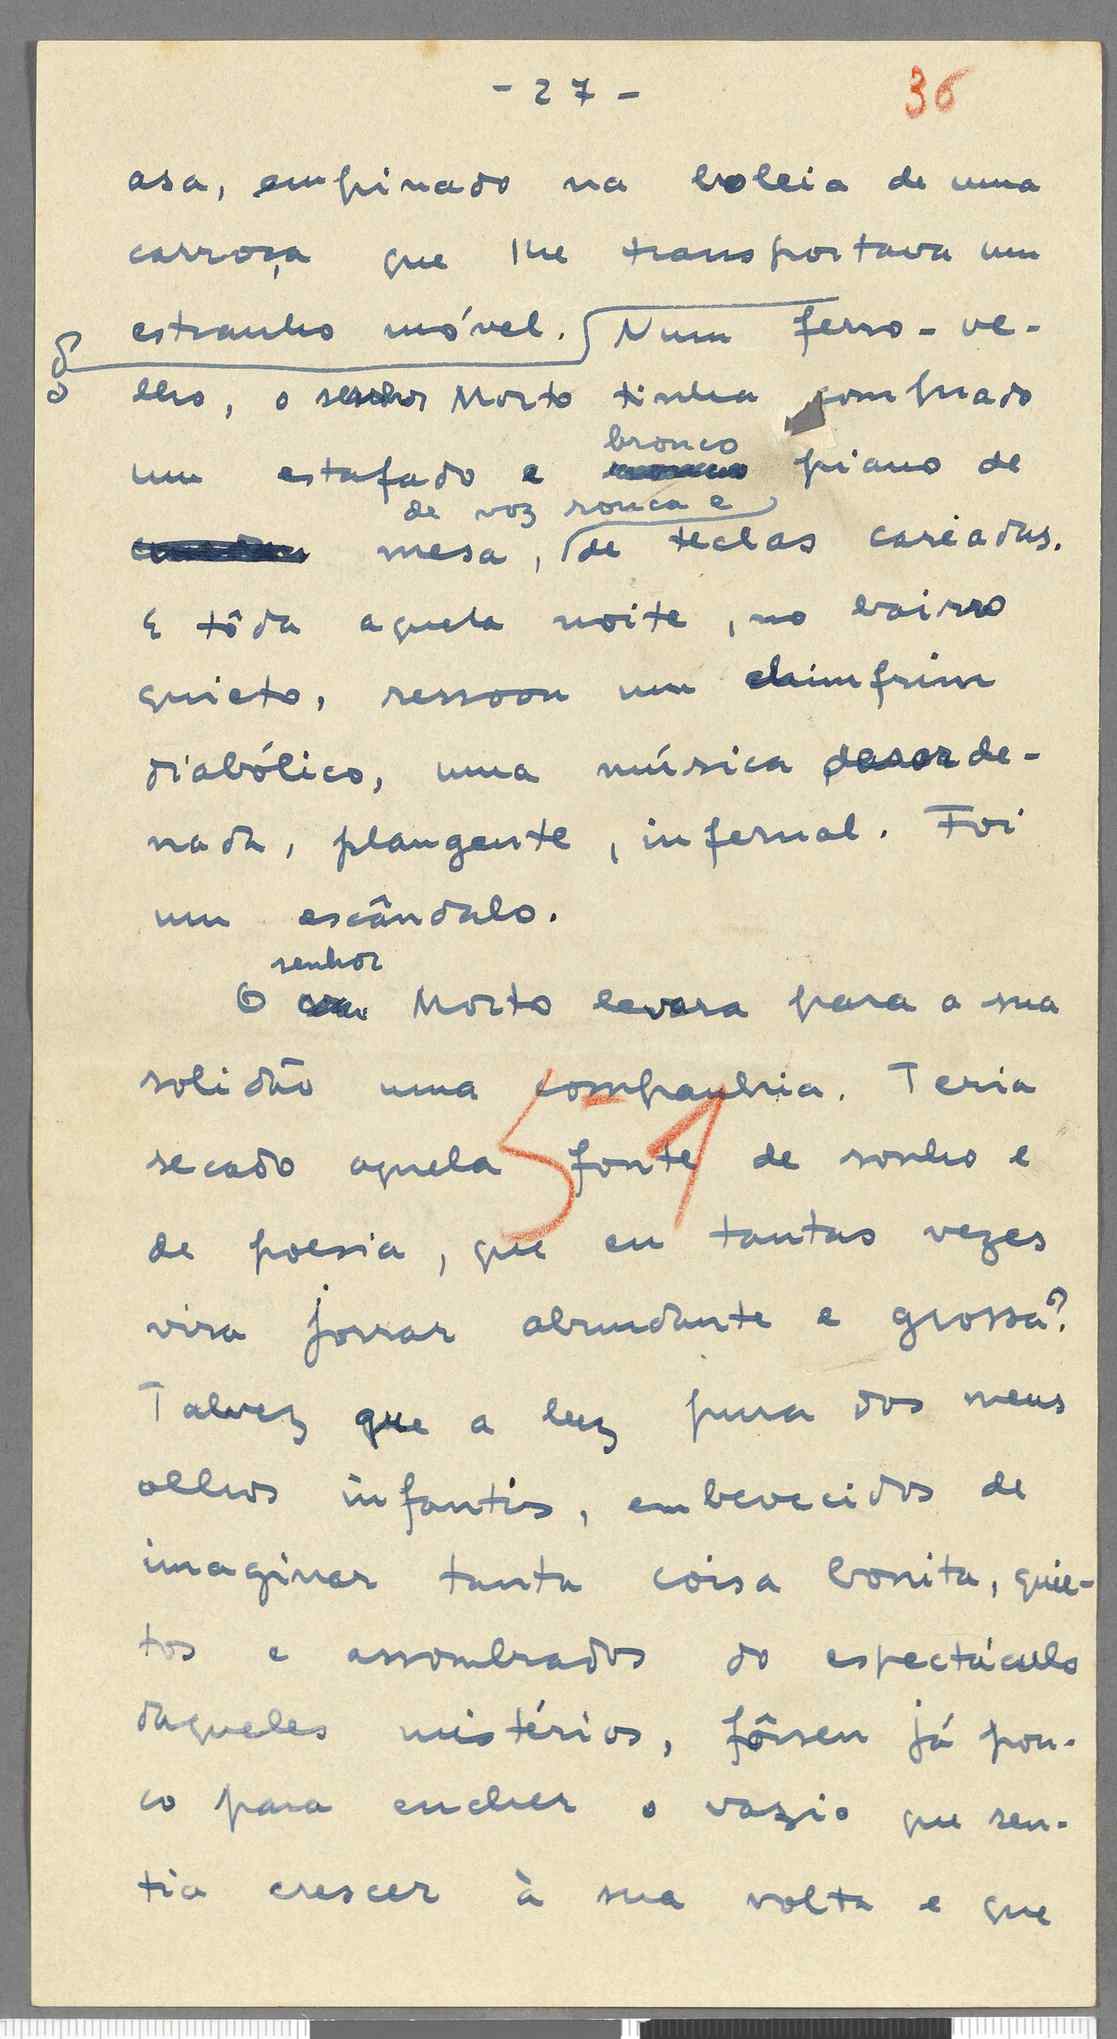 - 27 -
36
asa, empinado na boleia de uma
carroça que lhe transportava um
estranho móvel. Num ferro-ve-
lho, o senhor Morto tinha comprado
bronco
um estafado e piano de
de voz ronca e
mesa, de teclas cariadas.
E tôda aquela noite, no bairro
quieto, ressoou um chinfrim
diabólico, uma música desorde-
nada, plangente, infernal. Foi
um escândalo.
senhor
O Morto levara para a sua
solidão uma companhia. Teria
51
secado aquela fonte de sonho e
de poesia, que eu tantas vezes
vira jorrar abundante e grossa?
Talvez que a luz pura dos meus
olhos infantis, embevecidos de
imaginar tanta coisa bonita, quie-
tos e assombrados do espectáculo
daqueles mistérios, fôssem já pou-
co para encher o vazio que sen-
tia crescer à sua volta e que